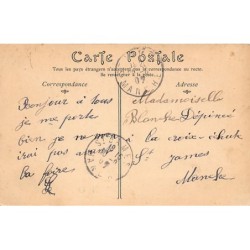 Carte Postale
Tous les pays étrangers n'acceptent pas la correspondance au recto.
Se renseigner à la poste.
Correspondance
Adresse
Bonjour à tous
je me porte
bien je ne
irai pas
la foire
Mademoiselle
Blanche
à la croix
St
James
Manche